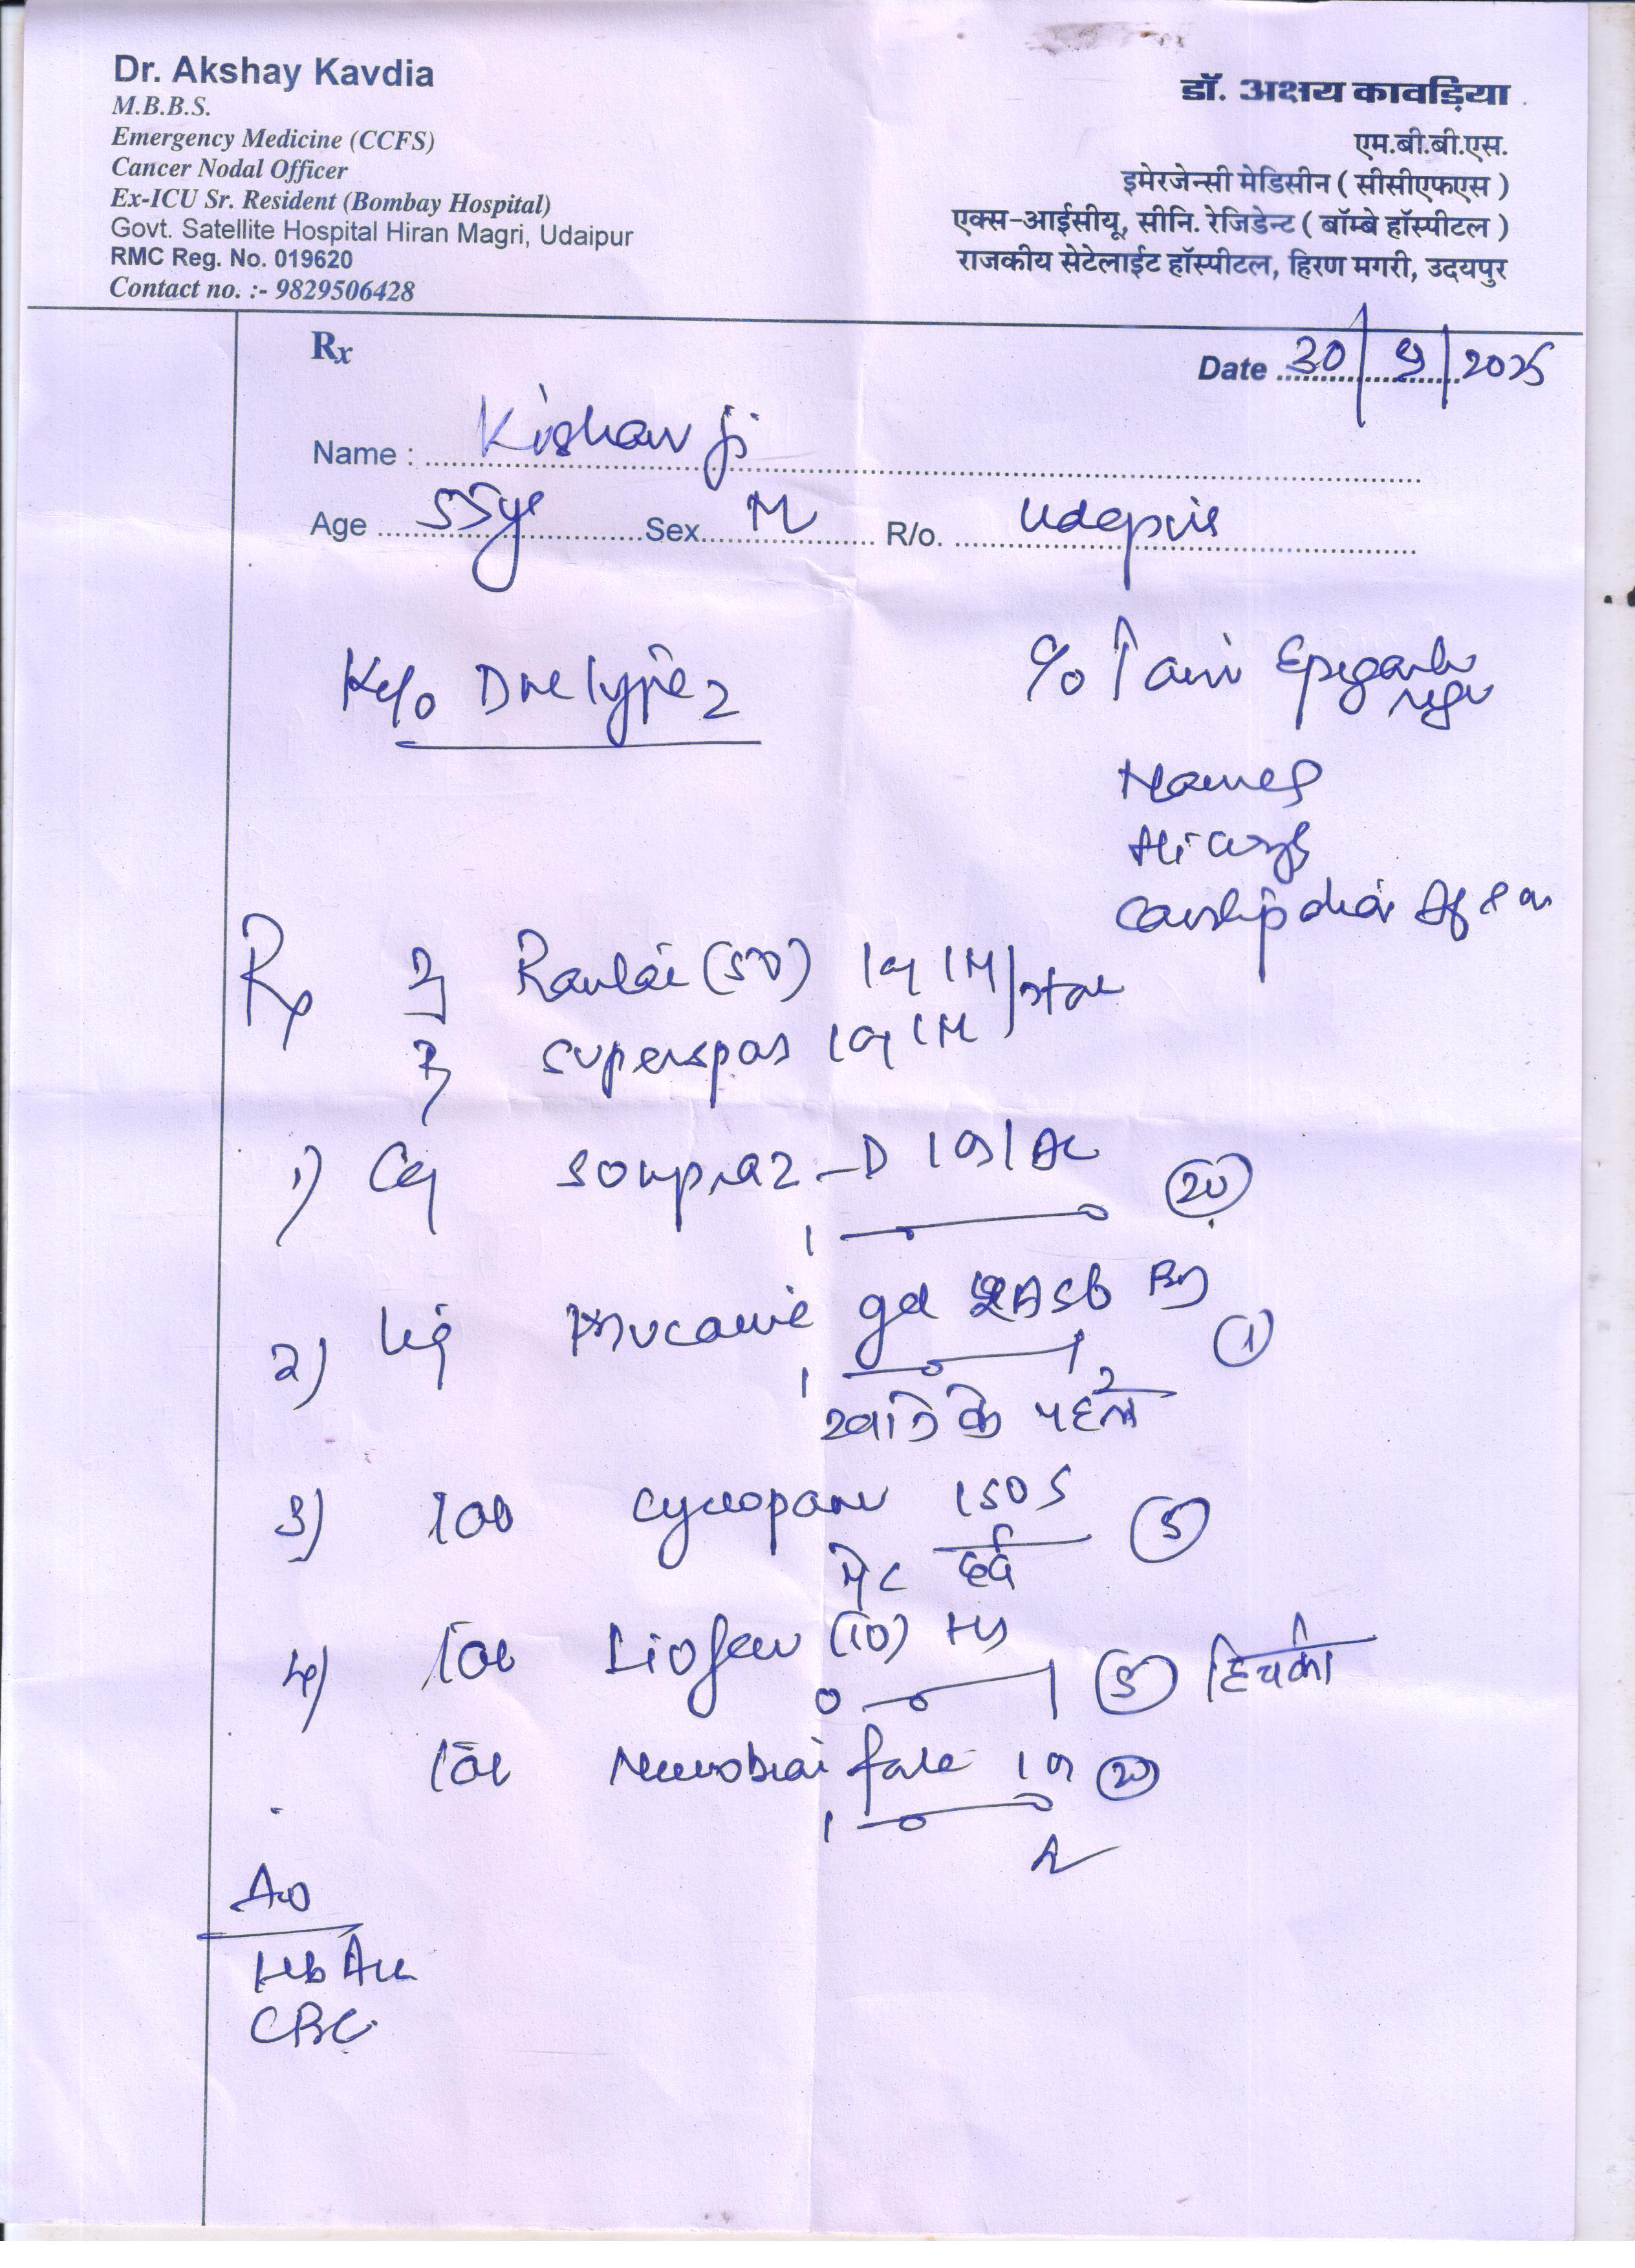 Dr. Akshay Kavdia
M.B.B.S.
Emergency Medicine (CCFS)
Cancer Nodal Officer
Ex-ICU Sr. Resident (Bombay Hospital)
Govt. Satellite Hospital Hiran Magri, Udaipur
RMC Reg. No. 019620
Contact no. :- 9829506428
डॉ. अक्षय कावड़िया
एम.बी.बी.एस.
इमेरजेन्सी मेडिसीन ( सीसीएफएस )
एक्स-आईसीयू, सीनि. रेजिडेन्ट ( बॉम्बे हॉस्पीटल )
राजकीय सेटेलाईट हॉस्पीटल, हिरण मगरी, उदयपुर
Rx
Date 30/9/2025
Name : Kishan ji
Age 55yr Sex M R/o. Udaipur
K/c/o DM type 2
c/o Pain Epigastric region
Nausea
Constipation
Rx Rantac (50) IM / stat
Superspas IM
1) Cap Sompraz-D 1 OD AC (20)
1 — 0 — 0
2) Mucaine gel BD (1)
1 — 0 — 1
खाने के पहले
3) Tab Cyclopam 1 SOS (5)
पेट दर्द
4) Tab Liofen (10) HS
0 — 0 — 1 (5) हिचकी
Tab Neurobion forte 1 OD (20)
1 — 0 — 0
Adv
HbA1c
CBC